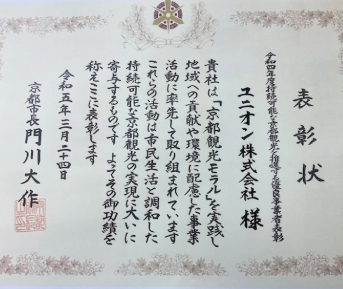 表彰状
令和四年度持続可能な京都観光を推進する優良事業者表彰
ユニオン株式会社 様
貴社は「京都観光モラル」を実践し
地域への貢献や環境に配慮した事業
活動に率先して取り組まれています
これらの活動は市民生活と調和した
持続可能な京都観光の実現に大いに
寄与するものです よってその御功績を
称えここに表彰します
令和五年二月二十四日
京都市長 門川大作